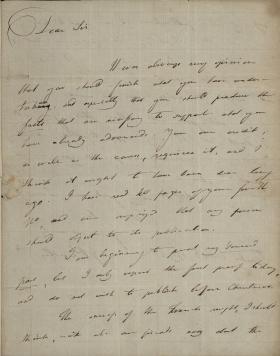 Dear Sir
It was always my opinion
that you should finish what you have under-
taken, and especially that you should produce the
facts that are necessary to support what you
have already advanced. Your own credit,
as well as the cause, requires it, and I
think it ought to have been done long
ago. I have read 20 pages of your
and am surprised that any person
should object to the publication.
I am beginning to print my second
part, but I only expect the first proof to day,
and do not wish to publish before Christmas.
The of the might, I should
think, with our friends